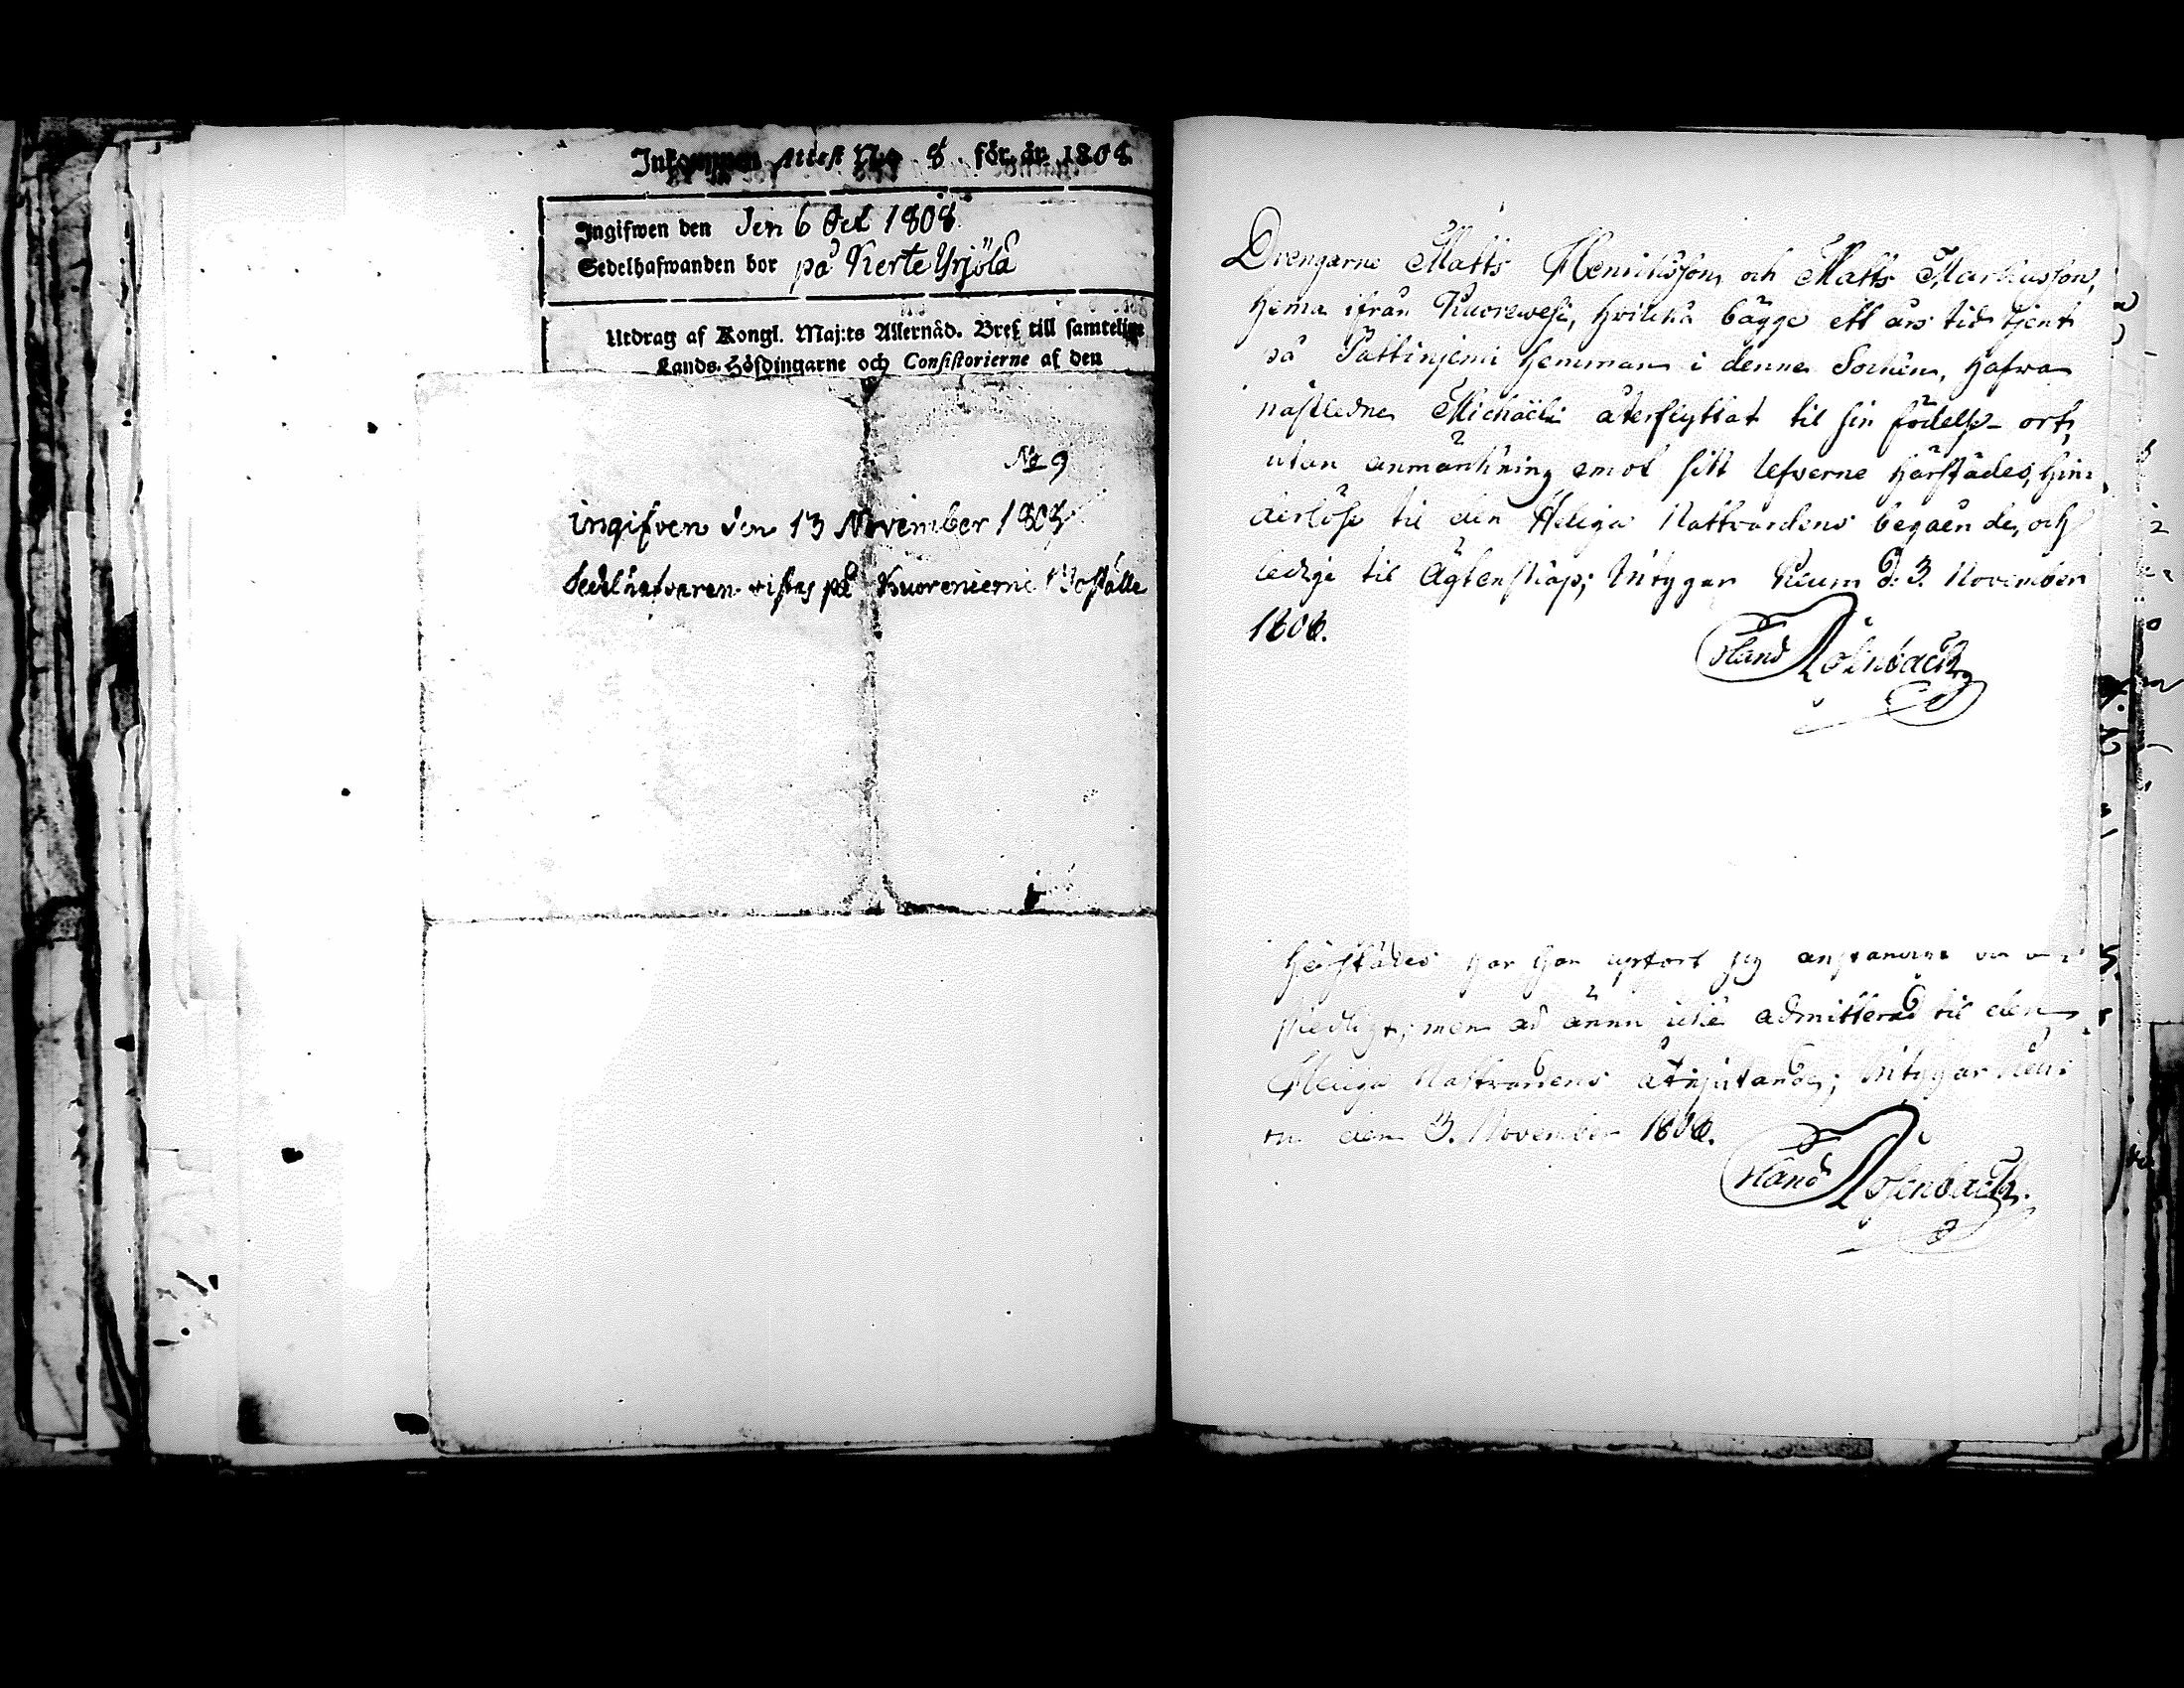 Inkommen Attest N:o 8. för år 1808.
Ingifwen den den 6 Oct 1808.
Sedelhafwanden bor på Kerte Yrjölä
Utdrag af Kongl. Maj:ts Allernåd. Bref till samtelige
Lands-Höfdingarne och Consistorierne af den
No 9
ingifven den 13 November 1808
Sedelhafvaren vistas på Kuoreniemi Boställe
Drengarne Matts Henrichsson och Matts Marcusson,
hema ifrån Kuorewesi, hvilcka bägge ett års tid tjent
på Pättiniemi hemman i denne Sochen, hafva
nästledne Michaëli återflyttat til sin födelse-ort,
utan anmärckning emot sitt lefverne härstädes, hin-
derlöse til den Heliga Nattvardens begående, och
ledige til Ägtenskap; Intygar Keuru d. 3. November
1808.
Rosenback
härstädes har han upfört sig anständigt och
skedligt; men är ännu icke admitterad til den
Heliga Nattvardens åtnjutande; Intygar Keu-
ru den 3. November 1808.
Rosenback.